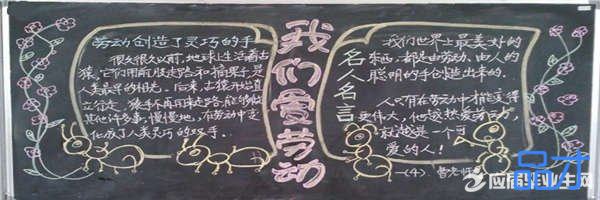 劳动创造了灵巧的手
很久很久以前,地球上生活着古
猿。它们用前肢走路和摘果子,是
人类最早的祖先。后来,古猿开始直
立行走。猿手不再用来走路,能够做
其他许多事,慢慢地,在劳动中变
化成了人类灵巧的双手。
我们爱劳动
名人名言
我们世界上最美好的
东西,都是由劳动、由人的
聪明的手创造出来的。
人只有在劳动中才能变得
更伟大,他越热爱劳动,
就越是一个可
爱的人!
一(4)
曾老师
应届毕业生网
品才